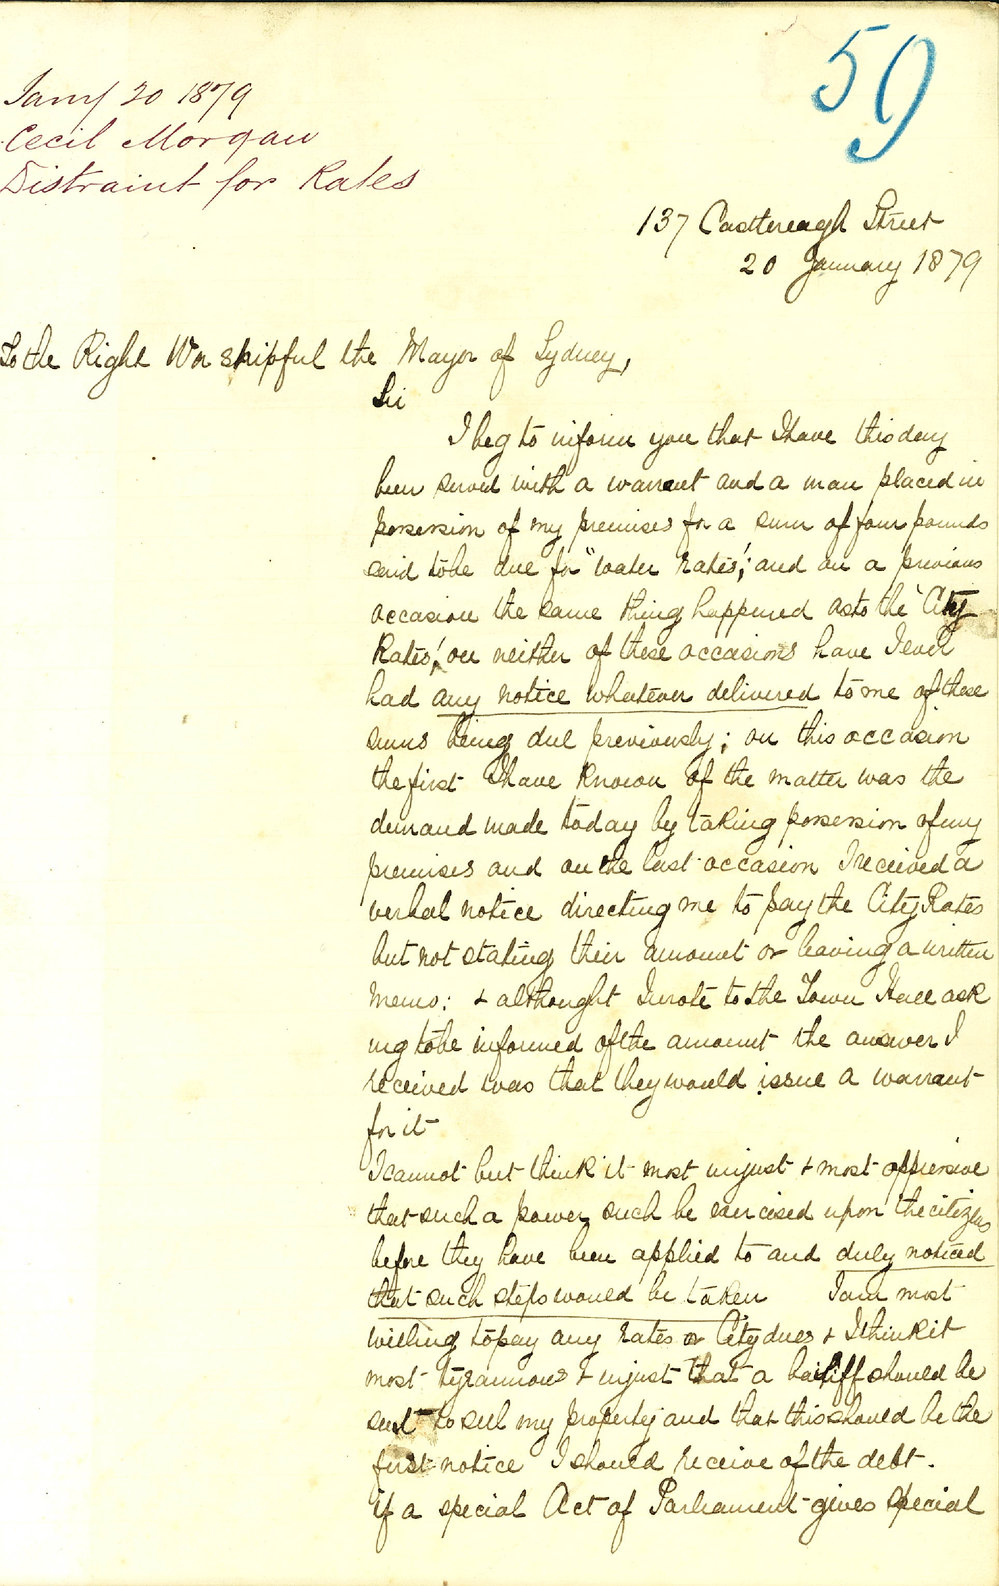 59
Jany 20 1879
Cecil Morgan
Distraint for Rates
137 Castlereagh Street
20 January 1879
To the Right Worshipful the Mayor of Sydney,
Sir
I beg to inform you that I have this day
been served with a warrant and a man placed in
possession of my premises for a sum of four pounds
said to be due for "water rates"; and on a previous
occasion the same thing happened as to the "City
Rates"; on neither of these occasions have I ever
had any notice whatever delivered to me of these
sums being due previously; on this occasion
the first I have known of the matter was the
demand made today by taking possession of my
premises and on the last occasion I received a
verbal notice directing me to pay the City Rates
but not stating their amount or leaving a written
memo: & althought I wrote to the Town Hall ask
ing to be informed of the amount the answer I
received was that they would issue a warrant
for it
I cannot but think it most unjust & most oppressive
that such a power such be exercised upon the citizens
before they have been applied to and duly noticed
that such steps would be taken I am most
willing to pay any rates or City dues & I think it
most tyrannous & unjust that a bailiff should be
sent to sell my property and that this should be the
first notice I should receive of the debt.
if a special Act of Parliament gives special